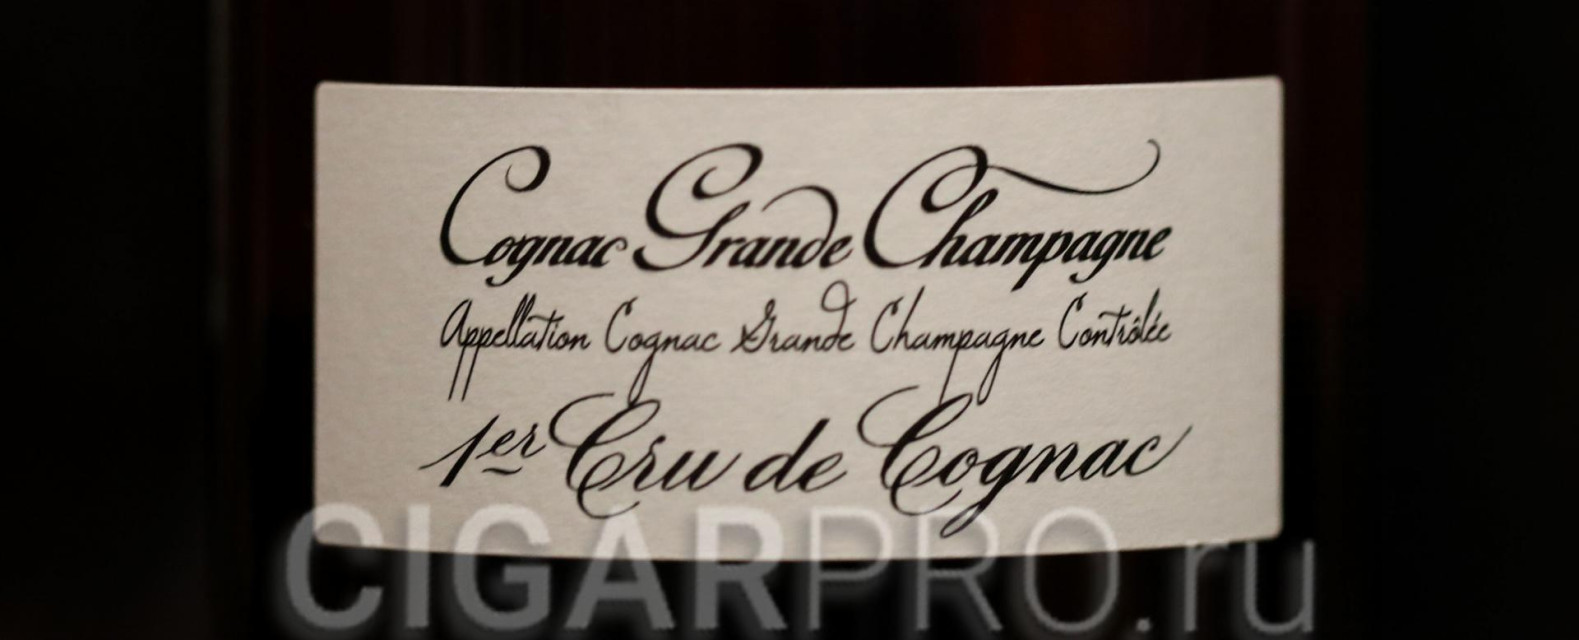 Cognac Grande Champagne
Appellation Cognac Grande Champagne Contrôlée
1er Cru de Cognac
CIGARPRO.ru